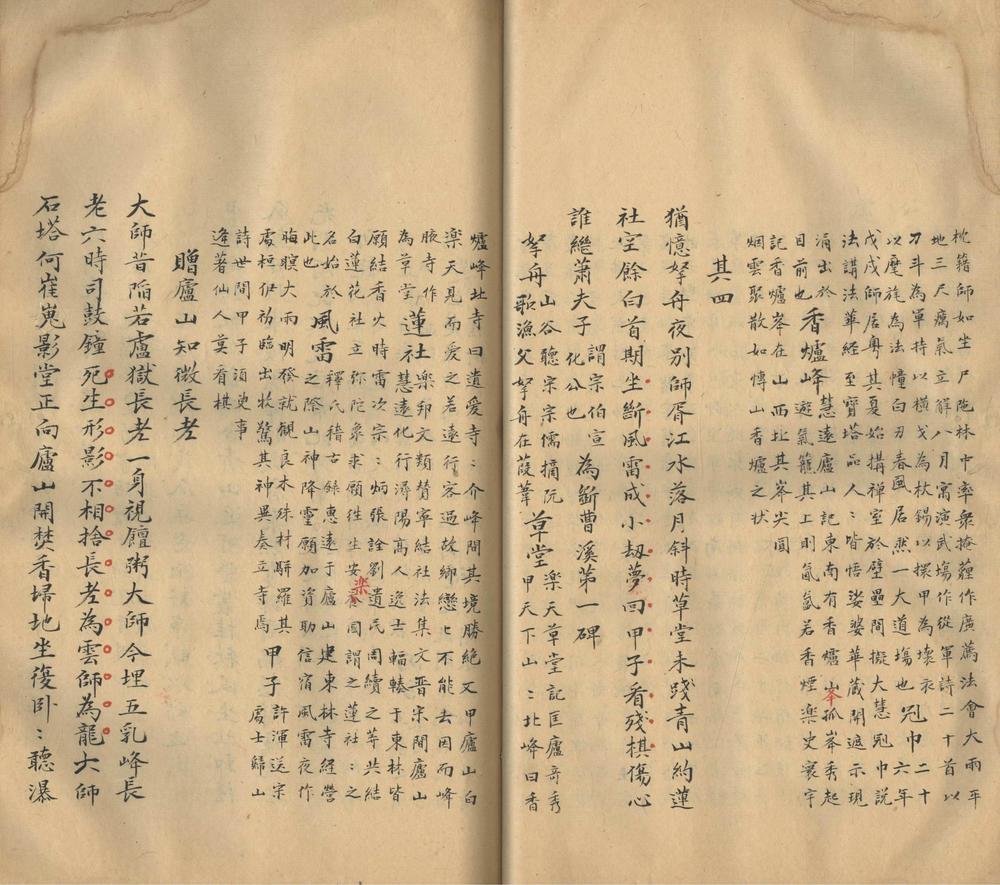 枕籍師如坐尸陁林中率衆掩薶作廣薦法會大雨平
地三尺癘氣立觧八月寓演武塲作從軍詩二十首以
刀斗為軍持以橫戈為杖錫以擐甲為壞衣
以麾旄為法幢白刃春風居然一大道塲也
冠巾
二十
六年
戊戌師居粤其夏始搆禅室於壁壘間擬大慧冠巾説
法講法華經至寶塔品人〻皆悟娑婆華藏開遮示現
涌出於
目前也
香爐峰
慧遠廬山記東南有香爐山孤峯秀起
遊氣籠其上則氤氲若香煙樂史寰宇
記香爐峯在山西北其峯尖圓
烟雲聚散如博山香爐之状
其四
猶憶拏舟夜别師胥江水落月斜時草堂未踐青山約蓮
社空餘白首期坐斷風雷成小刼夢回甲子看殘棋傷心
誰繼蕭夫子
謂宗伯宣
化公也
為斵曹溪第一碑
拏舟
山谷聽宗宗儒摘阮
歌漁父拏舟在葭葦
草堂
樂天草堂記匡廬奇秀
甲天下山〻北峰曰香
爐峰北寺曰遺愛寺〻介峰間其境勝絶又甲廬山白
樂天見而愛之若遠行客過故鄉戀〻不能去因而峰
腋寺作
為草堂
蓮社
樂邦文類贊寧結社法集文晋宋間廬山
慧遠化行潯陽高人逸士輻輳于東林皆
願結香火時雷次宗〻炳張詮劉遺民周續之等共結
白蓮花社立弥陀象求願徃生安樂國謂之蓮社〻之
名始於
此也
風雷
釋氏稽古録惠遠于廬山建東林寺經營
之際山神降靈願加資助信宿風雷夜作
晦暝大雨明發就観良木殊材駢羅其
處桓伊初臨出牧驚其神異奏立寺焉
甲子
許渾送宗
處士歸山
詩世間甲子須臾事
逢著仙人莫看棋
贈廬山知微長老
大師昔陷若盧獄長老一身視饘粥大師今埋五乳峰長
老六時司鼓鐘死生形影不相捨長老為雲師為龍大師
石塔何崔嵬影堂正向廬山開焚香埽地坐復卧〻聽瀑